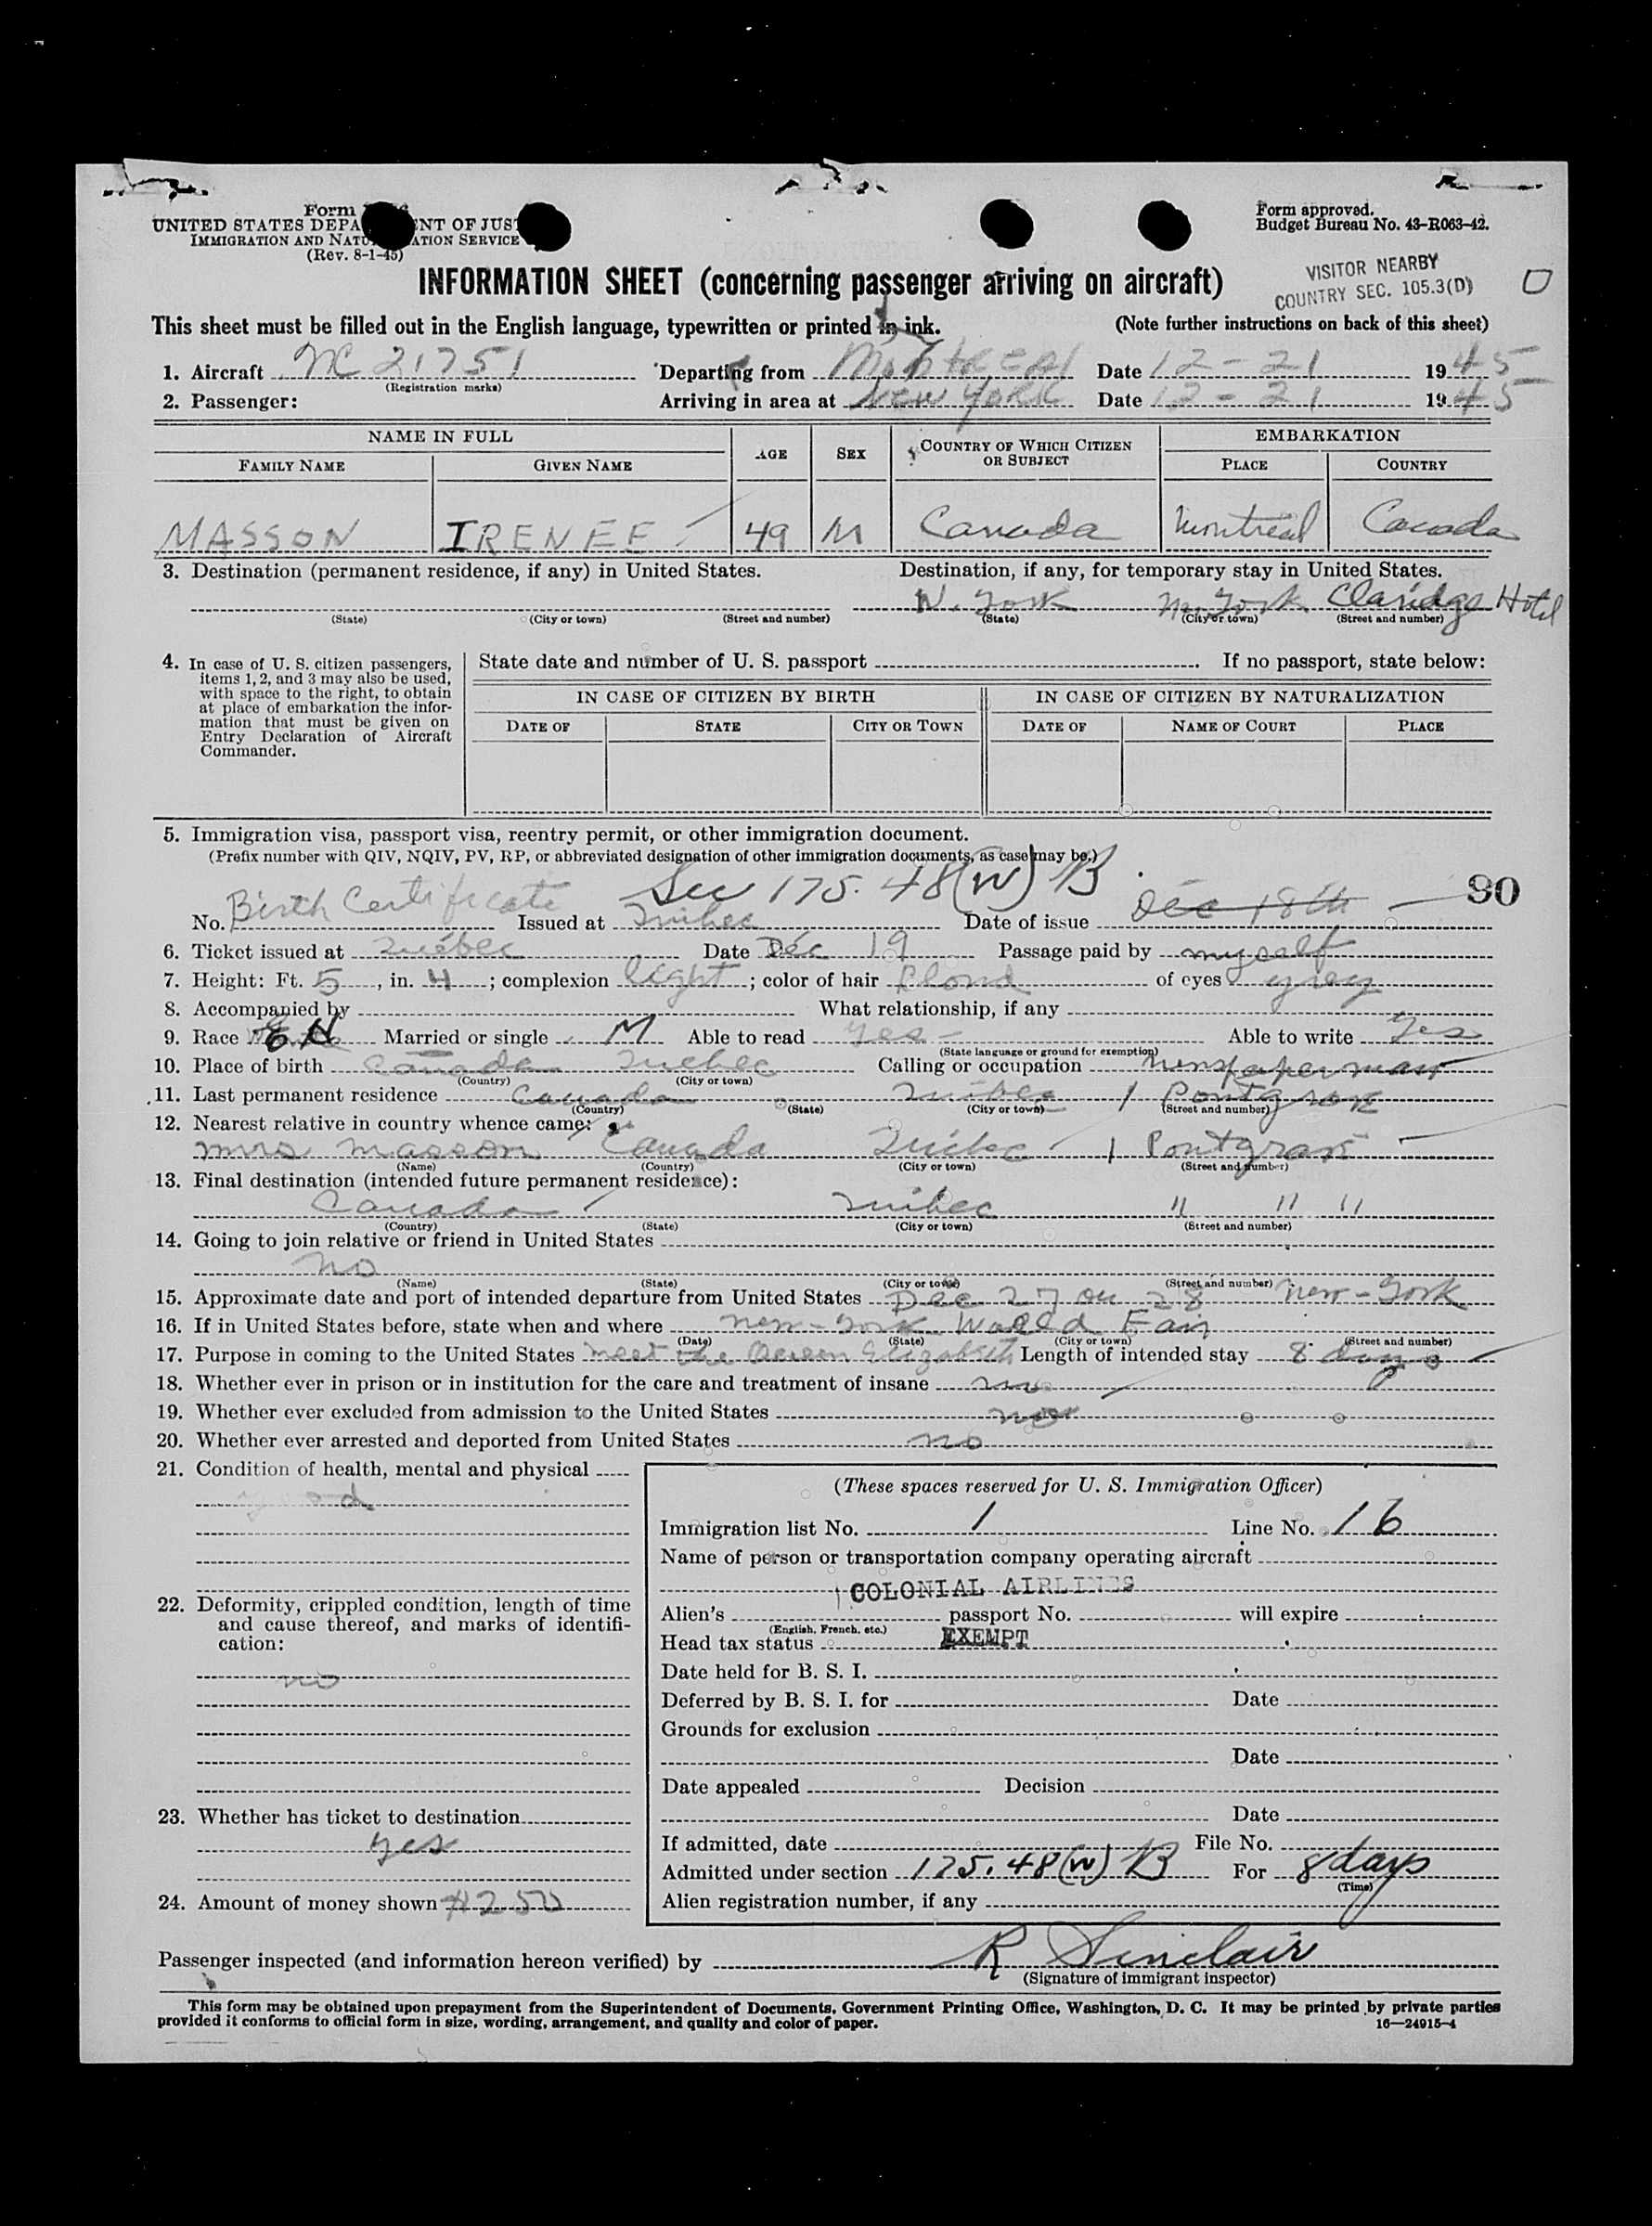 Form
UNITED STATES DEPA NT OF JUST
IMMIGRATION AND NATU ATION SERVICE
(Rev. 8-1-45)
Form approved.
Budget Bureau No. 43-R063-42.
INFORMATION SHEET (concerning passenger arriving on aircraft)
VISITOR NEARBY
COUNTRY SEC. 105.3(D)
This sheet must be filled out in the English language, typewritten or printed in ink.
(Note further instructions on back of this sheet)
1. Aircraft NC 21751 Departing from Montreal Date 12-21 1945
(Registration marks)
2. Passenger: Arriving in area at NEW YORK Date 12-21 1945
NAME IN FULL AGE SEX COUNTRY OF WHICH CITIZEN OR SUBJECT EMBARKATION
FAMILY NAME GIVEN NAME PLACE COUNTRY
MASSON IRENEE 49 M Canada Montreal Canada
3. Destination (permanent residence, if any) in United States. Destination, if any, for temporary stay in United States.
N. York N. York Claridge Hotel
(State) (City or town) (Street and number) (State) (City or town) (Street and number)
4. In case of U. S. citizen passengers, items 1, 2, and 3 may also be used, with space to the right, to obtain at place of embarkation the information that must be given on Entry Declaration of Aircraft Commander.
State date and number of U. S. passport If no passport, state below:
IN CASE OF CITIZEN BY BIRTH IN CASE OF CITIZEN BY NATURALIZATION
DATE OF STATE CITY OR TOWN DATE OF NAME OF COURT PLACE
5. Immigration visa, passport visa, reentry permit, or other immigration document.
(Prefix number with QIV, NQIV, PV, RP, or abbreviated designation of other immigration documents, as case may be.)
Sec 175.48(W) B
No. Birth Certificate Issued at Québec Date of issue Déc 18th 90
6. Ticket issued at Québec Date Déc 19 Passage paid by myself
7. Height: Ft. 5, in. 4; complexion light; color of hair blond of eyes grey
8. Accompanied by What relationship, if any
9. Race Married or single M Able to read yes Able to write yes
(State language or ground for exemption)
10. Place of birth Canada Quebec Calling or occupation newspaperman
(Country) (City or town)
11. Last permanent residence Canada Québec 1
(Country) (State) (City or town) (Street and number)
12. Nearest relative in country whence came:
Mrs Masson Canada Québec 1
(Name) (Country) (City or town) (Street and number)
13. Final destination (intended future permanent residence):
Canada Québec " " "
(Country) (State) (City or town) (Street and number)
14. Going to join relative or friend in United States
no
(Name) (State) (City or town) (Street and number)
15. Approximate date and port of intended departure from United States Dec 27 ou 28 New-York
16. If in United States before, state when and where New-York World Fair
(Date) (State) (City or town) (Street and number)
17. Purpose in coming to the United States meet the Queen Elizabeth Length of intended stay 8 days
18. Whether ever in prison or in institution for the care and treatment of insane no
19. Whether ever excluded from admission to the United States no
20. Whether ever arrested and deported from United States no
21. Condition of health, mental and physical
good
22. Deformity, crippled condition, length of time and cause thereof, and marks of identification:
no
23. Whether has ticket to destination
yes
24. Amount of money shown $250
(These spaces reserved for U. S. Immigration Officer)
Immigration list No. 1 Line No. 16
Name of person or transportation company operating aircraft
COLONIAL AIRLINES
Alien's passport No. will expire
(English, French, etc.)
Head tax status EXEMPT
Date held for B. S. I.
Deferred by B. S. I. for Date
Grounds for exclusion
Date
Date appealed Decision
Date
If admitted, date File No.
Admitted under section 175.48(W) B For 8 days
(Time)
Alien registration number, if any
Passenger inspected (and information hereon verified) by R Sinclair
(Signature of immigrant inspector)
This form may be obtained upon prepayment from the Superintendent of Documents, Government Printing Office, Washington, D. C. It may be printed by private parties
provided it conforms to official form in size, wording, arrangement, and quality and color of paper. 16—24915-4